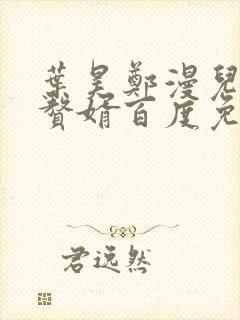 葉昊鄭漫兒
贅婿百度免
君远然